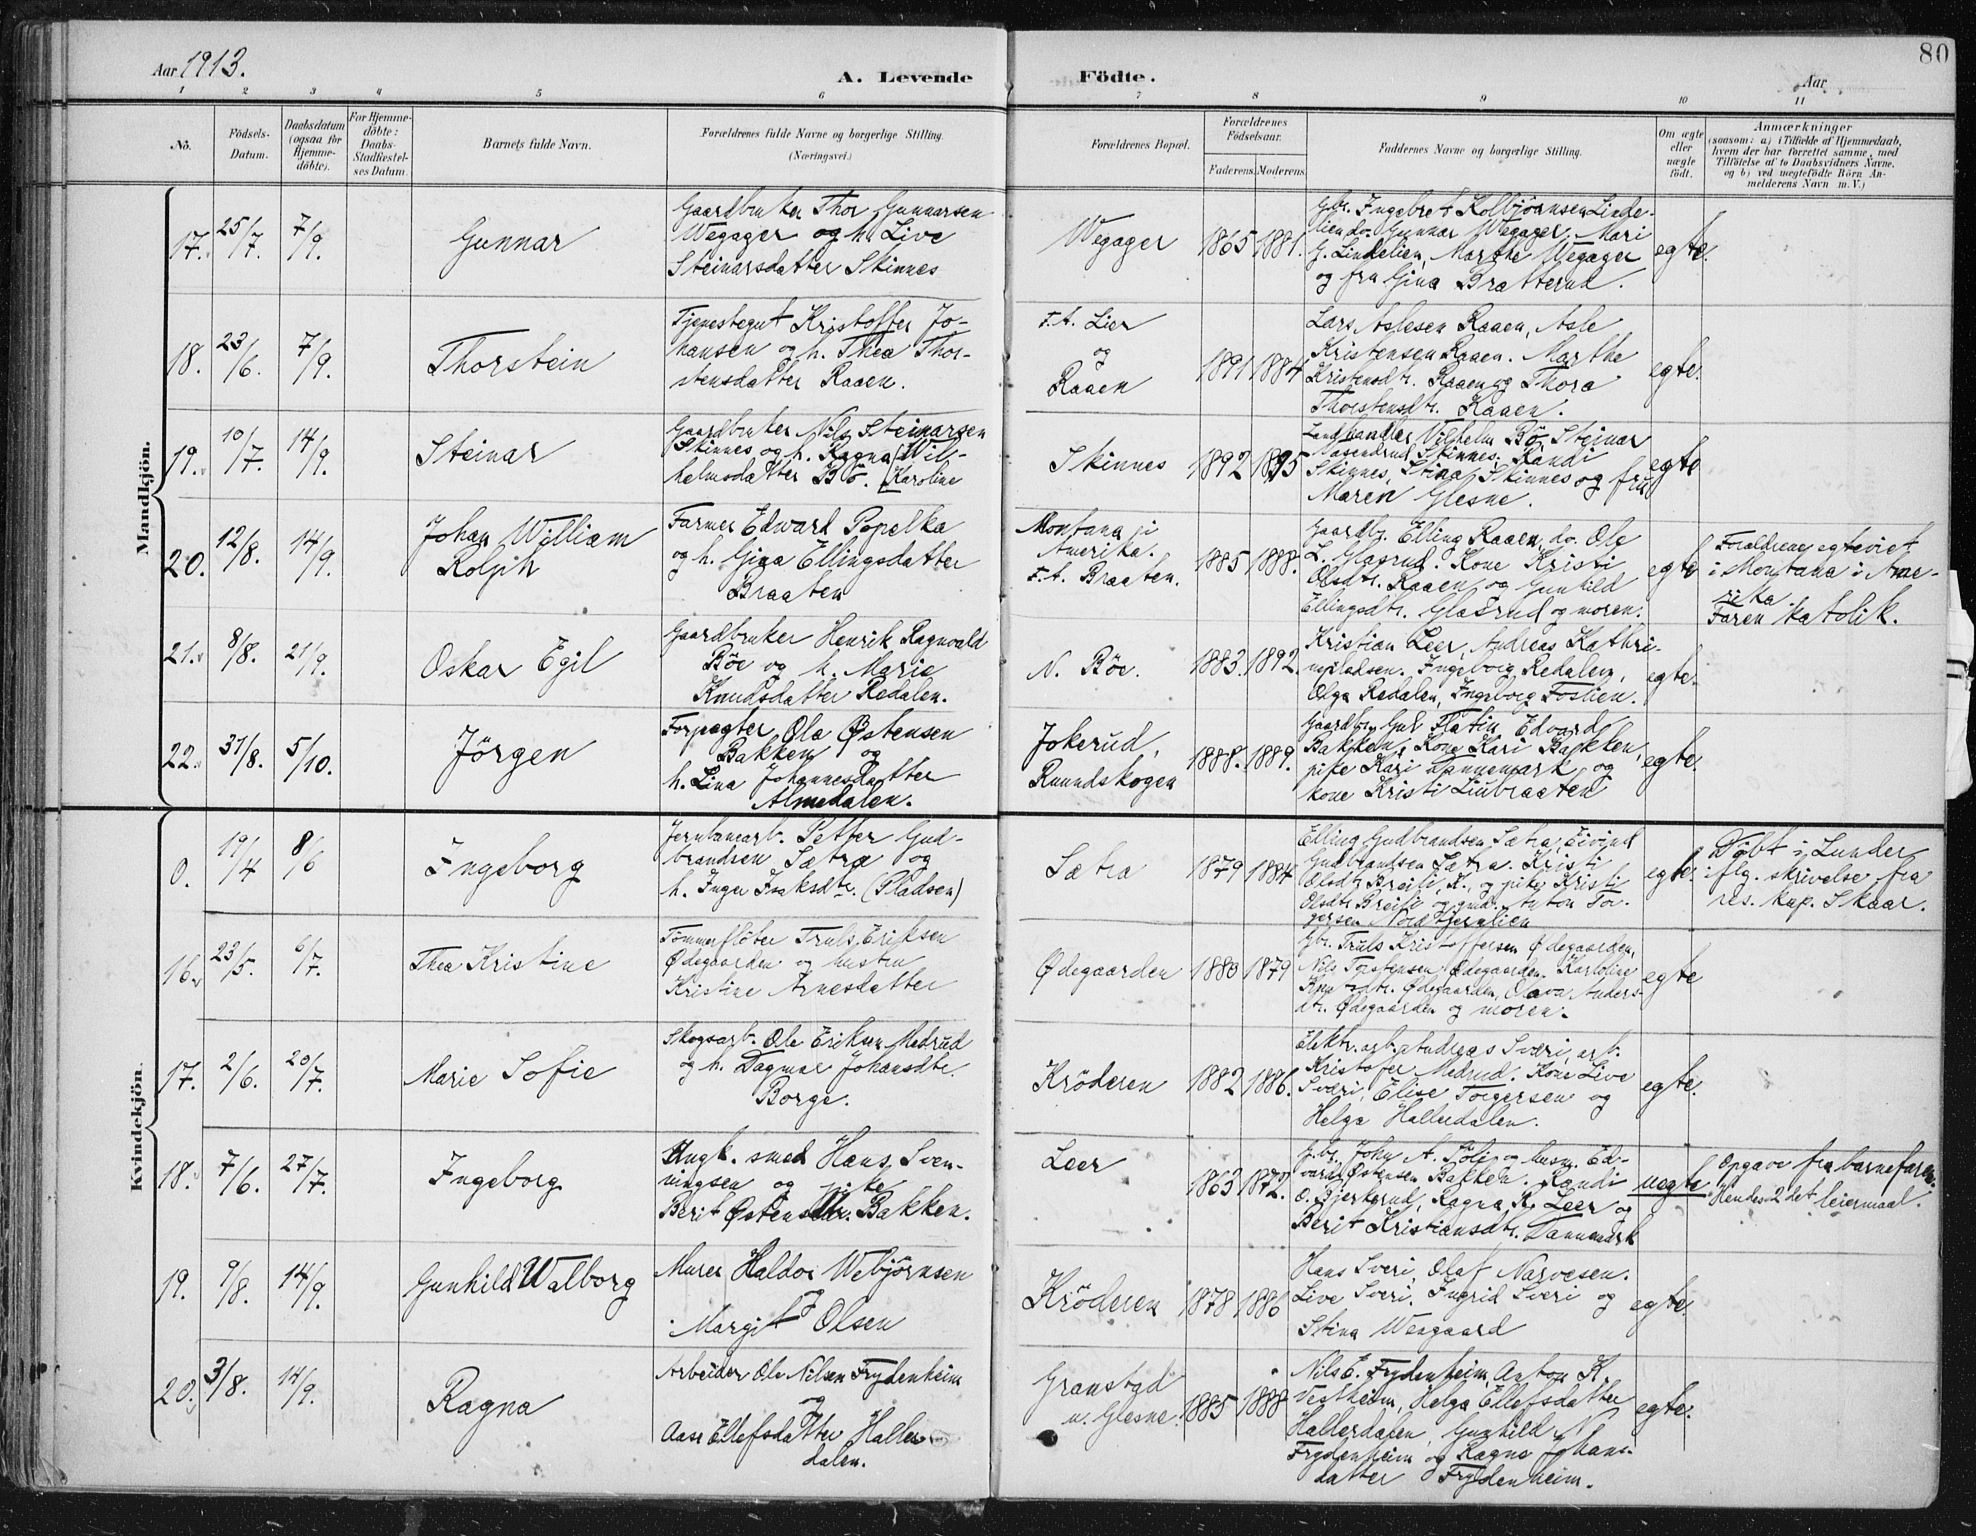 80
Aar 1913.
A. Levende Födte.
Aar
1 2 3 4 5 6 7 8 9 10 11
No.
Födsels-Datum.
Daabsdatum (ogsaa for Hjemmedöbte).
For Hjemmedöbte: Daabs-Stadfæstelses Datum.
Barnets fulde Navn.
Forældrenes fulde Navne og borgerlige Stilling.
(Næringsvei.)
Forældrenes Bopæl.
Forældrenes Födselsaar.
Faderens. Moderens.
Faddernes Navne og borgerlige Stilling.
Om ægte eller uægte födt.
Anmærkninger
(saasom: a) i Tilfælde af Hjemmedaab, hvem der har forrettet samme, med Tilföielse af to Daabsvidners Navne, og b) ved uægtefödte Börn Anmelderens Navn m. V.)
Mandkjön.
17. 25/7. 7/9. Gunnar
Gaardbruker Thor Gunnarsen
Wegager og h. Live
Steinarsdatter Skinnes
Wegager 1865 1881.
Gbr. Ingebret Kolbjörnsen Linde-
lien do. Gunnar Wegager. Mari
G. Lindelien, Marthe Wegager
og fru Gina Bratterud.
egte.
18. 23/6. 7/9. Thorstein
Tjenestegut Kristoffer Jo-
hansen og h. Thea Thor-
stensdatter Raaen.
F.A. Lier
og
Raaen
1891 1884
Lars Aslesen Raaen, Asle
Kristensen Raaen. Marthe
Kristensdtr. Raaen og Thora
Thorstensdtr. Raaen.
egte.
19. 10/7. 14/9. Steinar
Gaardbruker Nils Steinarsen
Skinnes og h. Ragna (Wil-
helmsdatter Bö. (Karoline
Skinnes 1892 1895
Landhandler Vilhelm Bö, Steinar
Aasendrud Skinnes, Randi
Skinnes, Stina Skinnes og fru
Maren Glesne.
egte
20. 12/8. 14/9. Johan William
Rolph
Farmer Edward Popelka
og h. Gina Ellingsdatter
Braaten
Montana i
Amerika.
F.A. Braaten.
1885 1888.
Gaardbr. Elling Raaen, do. Ole
L. Glasrud. Kone Kristi
Olsdtr. Raaen og Gunhild
Ellingsdtr. Glasrud og moren.
egte
Foreldrene egteviet
i Montana i Ame-
rika.
Faren katolik.
21. 8/8. 21/9. Oskar Egil
Gaardbruker Henrik Ragnvald
Böe og h. Marie
Knudsdatter Redalen.
N. Böe. 1883. 1892.
Kristian Leer, Andreas Kathri-
nepladsen. Ingeborg Redalen,
Olga Redalen, Ingeborg Foslien.
egte.
22. 31/8. 5/10. Jörgen
Forpagter Ole Østensen
Bakken og
h. Lina Johannesdatter
Almedalen.
Jokerud,
Ruundskogen
1888. 1889.
Gaardbr. Gul Flatin, Edvard
Bakken, Kone Kari Bakken,
pike Kari Dannemark og
kone Kristi Liubraaten
egte.
Kvindekjön.
0. 19/4 8/6 Ingeborg
Jernbanearb. Petter Gud-
brandsen Sætra og
h. Inger Isaksdtr. (Pladsen)
Sætra 1879 1884
Elling Gudbrandsen Sætra, Eivind
Gudbrandsen Sætra. Kristi
Olsdtr. Breili, K., og pike Kristi
Olsdtr Breili og gmd. Anton Tor-
gersen Nord Hjernlien
egte.
Döbt i Lunder
iflg. skrivelse fra
res. kap. Skaar.
16. 23/5. 6/7. Thea Kristine
Tömmerflöter Truls Eriksen
Ødegaarden og hustru
Kristine Arnesdatter
Ødegaarden 1880 1879
Gbr. Truls Kristoffersen Ødegaarden,
Nils Torstensen Ødegaarden. Karoline
Knudsdtr. Ødegaarden, Olava Anders-
dtr. Ødegaarden og moren.
egte
17. 2/6. 20/7. Marie Sofie
Skogsarb. Ole Eriksen Medrud
og h. Dagmar Johansdtr.
Borge.
Kröderen 1882 1886.
Elektr. arb. Andreas Sværi, arb.
Kristofer Medrud. Kone Live
Sværi, Elise Torgersen og
Helga Hallerdalen.
egte.
18. 7/6. 27/7. Ingeborg
Ungk. smed Hans Sven-
ningsen og pike
Berit Østensdtr. Bakken.
Leer 1863 1872.
Gbr. John A. Söli og husm. Ed-
vard Østensen Bakken. Randi
O. Bjerkerud, Ragna K. Leer og
Berit Kristiansdtr. Dannemark
uegte
Opgave fra barnefaren.
Hendes 2det leiermaal.
19. 9/8. 14/9. Gunhild Walborg
Murer Haldor Webjørnsen
og
Margit Olsen
Kröderen 1878 1886
Hans Sveri, Olaf Narvesen.
Live Sveri, Ingrid Sveri og
Stina Wengaard
egte.
20. 3/8. 14/9. Ragna
Arbeider Ole Nilsen Frydenheim
og
Aase Ellefsdatter Haller
dalen.
Granstad
u. Glesne.
1885 1888
Nils E. Frydenheim, Anton K.
Vestheim, Helga Ellefsdatter
Hallerdalen, Gunhild N.
Frydenheim og Ragna Johans-
datter Frydenheim.
egte.